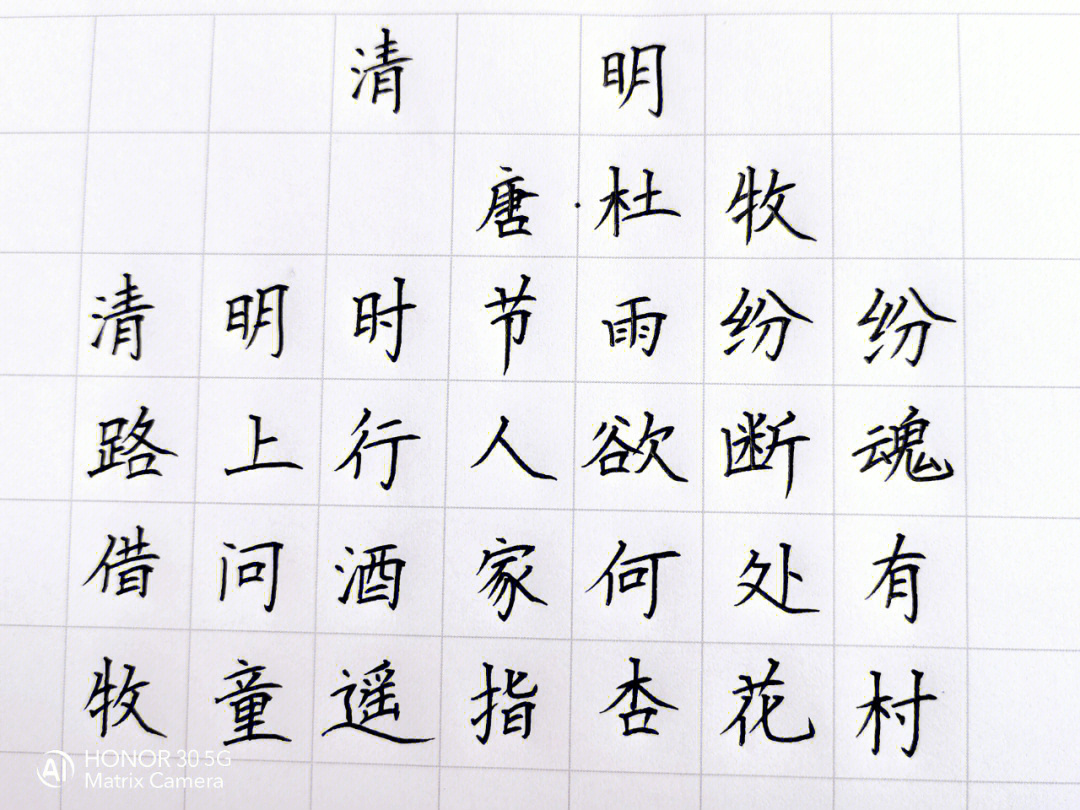 清明
唐·杜牧
清明时节雨纷纷
路上行人欲断魂
借问酒家何处有
牧童遥指杏花村
AI HONOR 30 5G
Matrix Camera